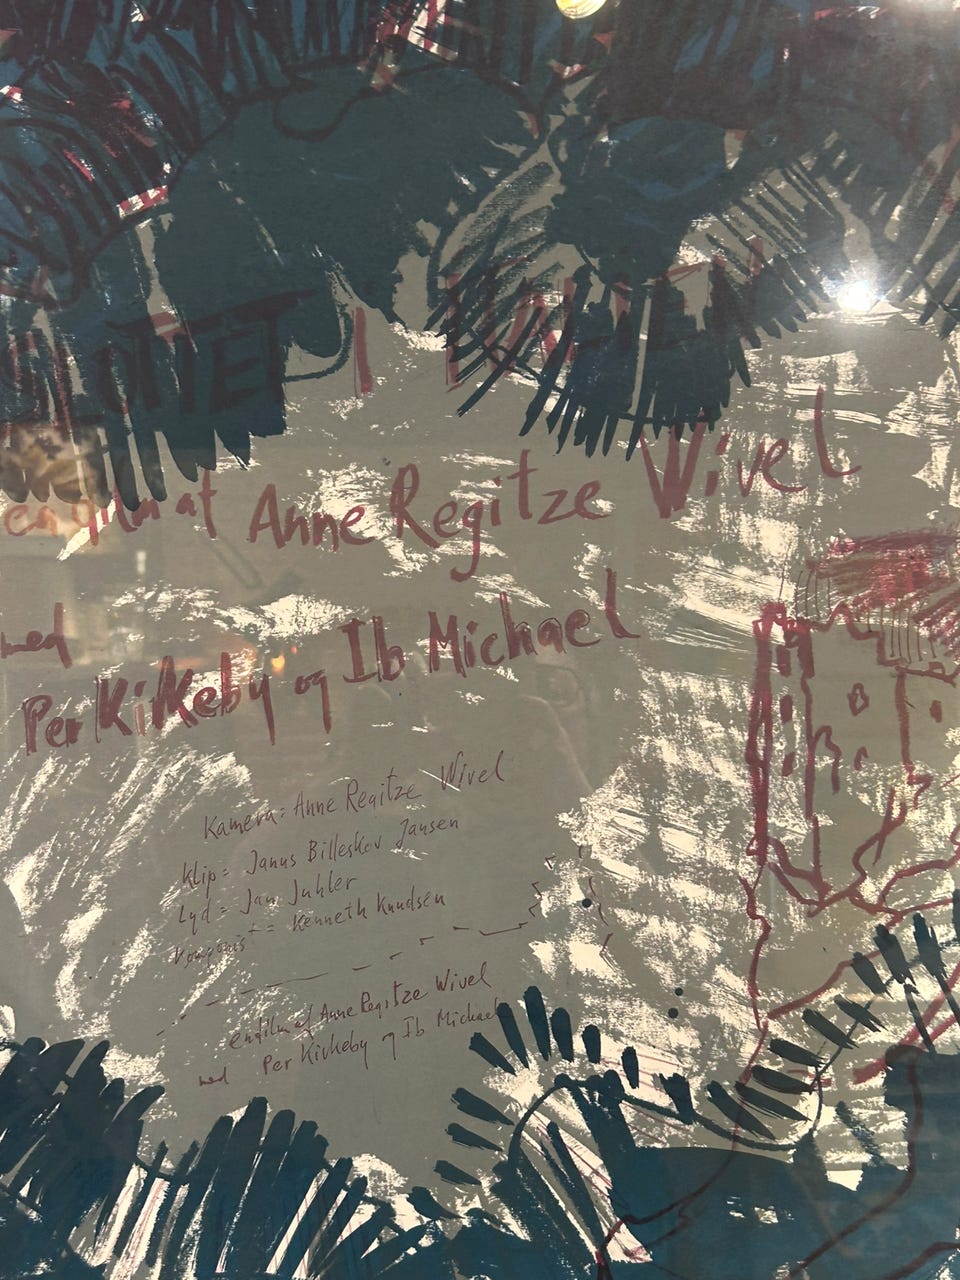 SLOTTET I ITALIEN
en film af Anne Regitze Wivel
med
Per Kirkeby og Ib Michael
Kamera: Anne Regitze Wivel
Klip: Janus Billeskov Jansen
Lyd: Jan Juhler
Komponist: Kenneth Knudsen
en film af Anne Regitze Wivel
med Per Kirkeby og Ib Michael